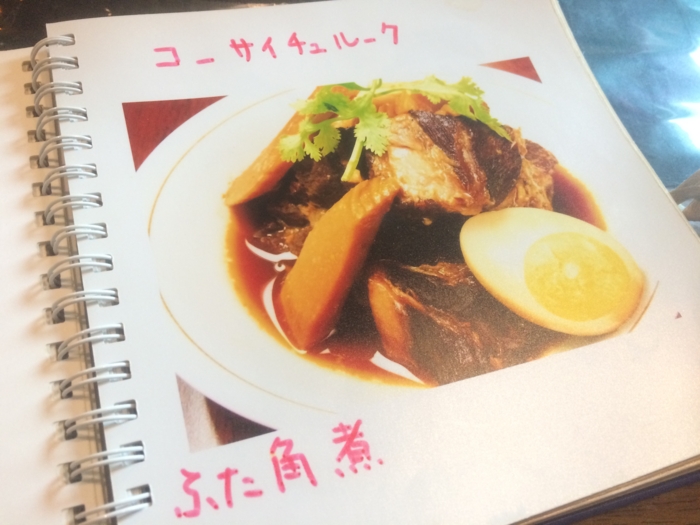 コーサイチュルーク
ふた角煮